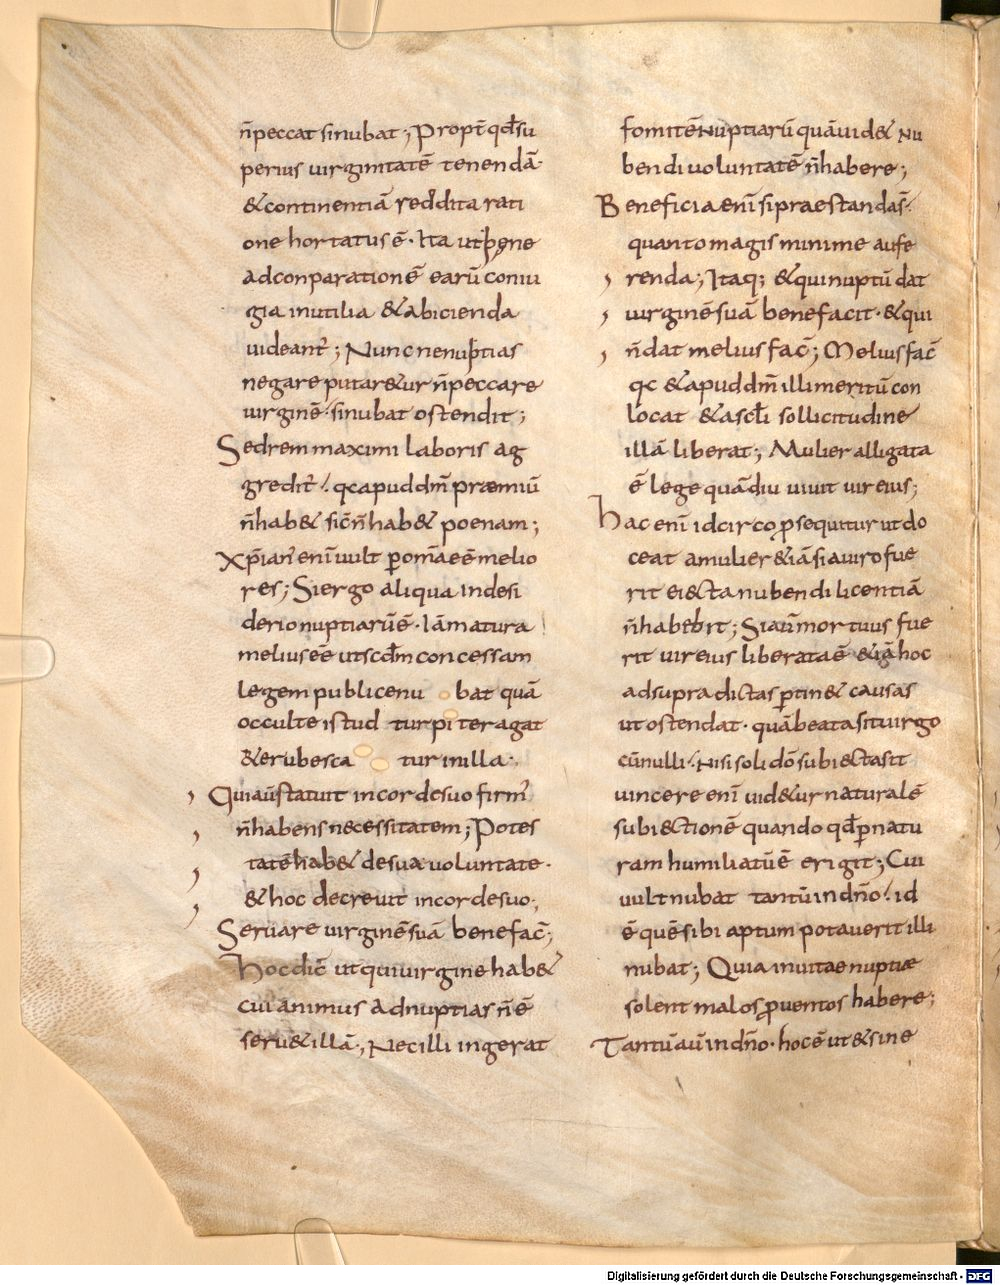 n̄peccat sinubat; Propt̄ qđsu
perius uirginitatē tenendā·
&continentiā reddita rati
one hortatus ē· Ita ut hęne
adconparationē earū coniu
gia inutilia &abicienda
uideant̄; Nunc nenuptias
negare putar&ur n̄peccare
uirginē· sinubat ostendit;
Sedrem maximi laboris ag
gredit̄· qcapud dm̄ præmiū
n̄hab& sic̄n̄hab& poenam;
Xp̄ian̄ enī uult ꝑom̄a eē melio
res; Siergo aliqua indesi
derio nuptiarū ē· Iā matura
melius eē utscđm concessam
legem publice nu bat quā
occulte istud turpi ter agat
&erubesca tur inilla·,
Quiaūstatuit incordesuo firm̄
n̄habens necessitatem; Potes
tatē hab& desua uoluntate·
&hoc decreuit incordesuo·,
Seruare uirginē suā benefac̄;
Hocdic̄ utquiuirginehab&
cui animus adnuptias n̄ē
seru&illā·, Necilli ingerat
fomitē nuptiarū quāuid& nu
bendi uoluntatē n̄habere;
Beneficia enī sipraestandas̄·
quanto magis minime aufe
renda; Itaq; &quinuptū dat
uirginē suā benefacit· &qui
n̄dat meliusfac̄; Meliusfac̄
qc &apud dm̄ illi meritū con
locat &ascłi sollicitudine
illā liberat; Mulier alligata
ē lege quādiu uiuit uireius;
Hac enī idcirco ꝓsequitur ut do
ceat amulier &iā siauiro fue
rit eiecta nubendi licentiā
n̄habebit; Siaūmortuus fue
rit uireius liberata ē &iā hoc
adsupradictas ꝑtin& causas
utostendat· quābeata sit uirgo
cū nulli· nisi soli dō subiecta sit
uincere enī uid&ur naturalē
subiectionē quando qđꝑ natu
ram humiliatū ē erigit; Cui
uult nubat tantū indn̄o· id
ē quē sibi aptum potauerit illi
nubat; Quia inuitae nuptiæ
solent malos ꝓuentos habere;
Tantū aū indn̄o· hoc ē ut &sine
Digitalisierung gefördert durch die Deutsche Forschungsgemeinschaft - DFG